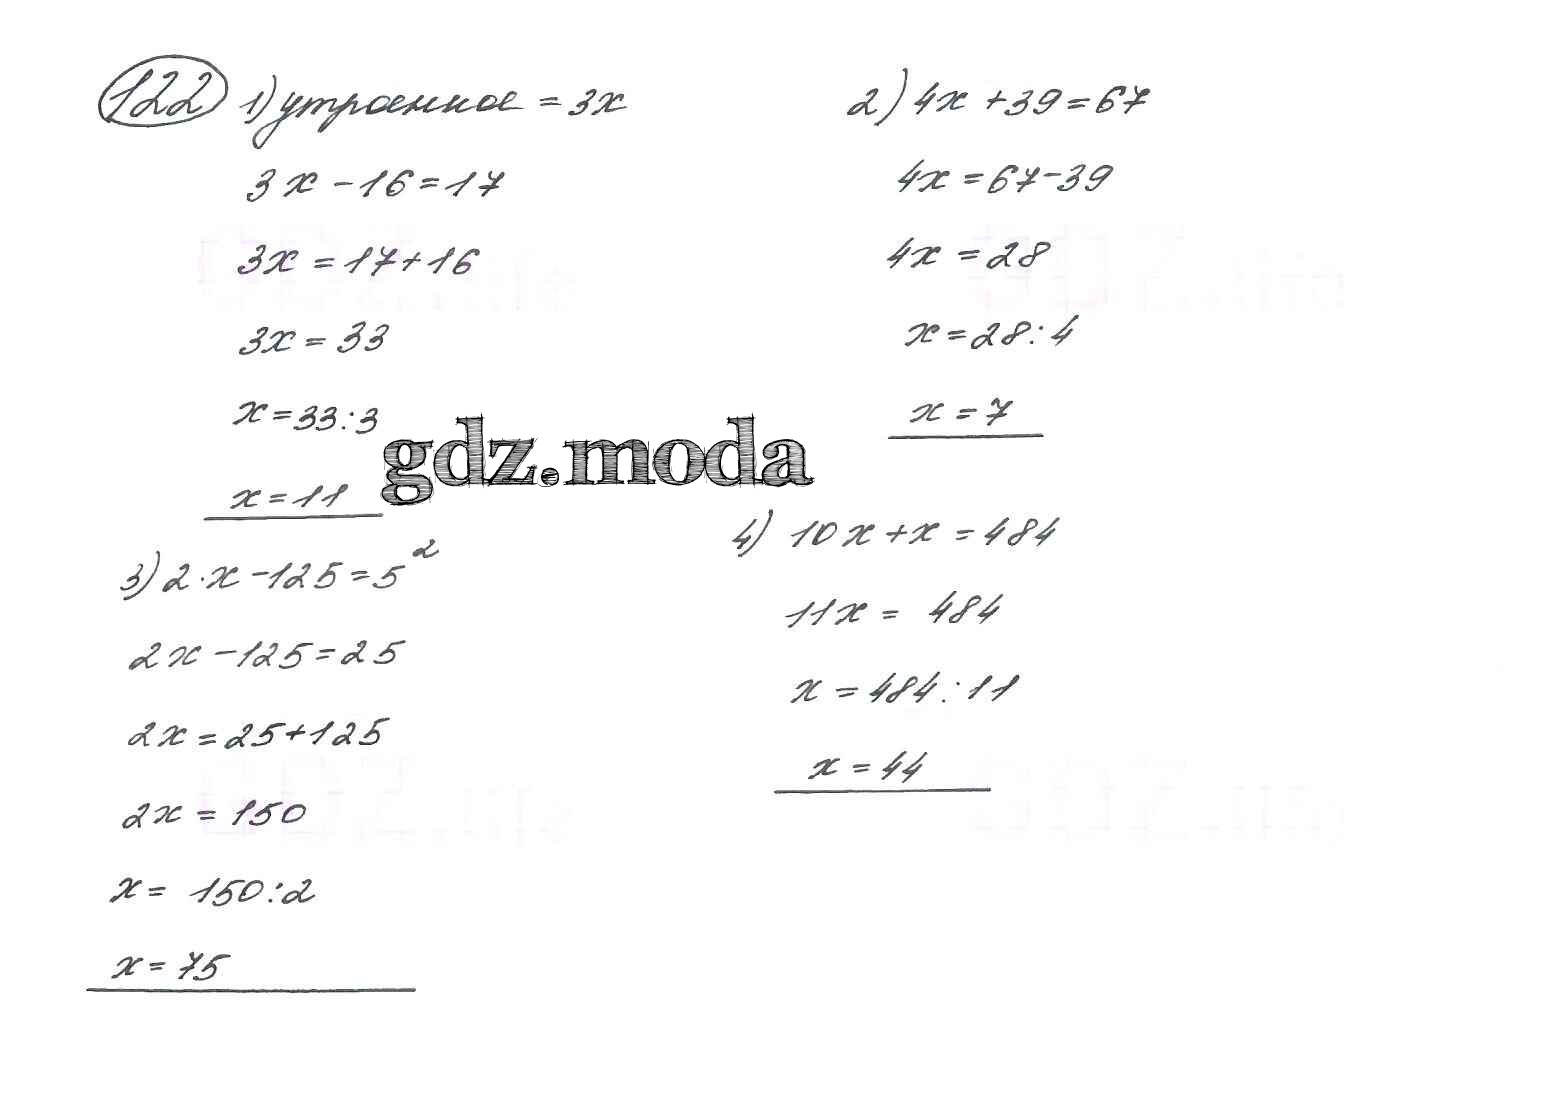 122 1) утроенное = 3x
3x - 16 = 17
3x = 17 + 16
3x = 33
x = 33 : 3
x = 11
2) 4x + 39 = 67
4x = 67 - 39
4x = 28
x = 28 : 4
x = 7
gdz.moda
3) 2 · x - 125 = 5²
2x - 125 = 25
2x = 25 + 125
2x = 150
x = 150 : 2
x = 75
4) 10x + x = 484
11x = 484
x = 484 : 11
x = 44